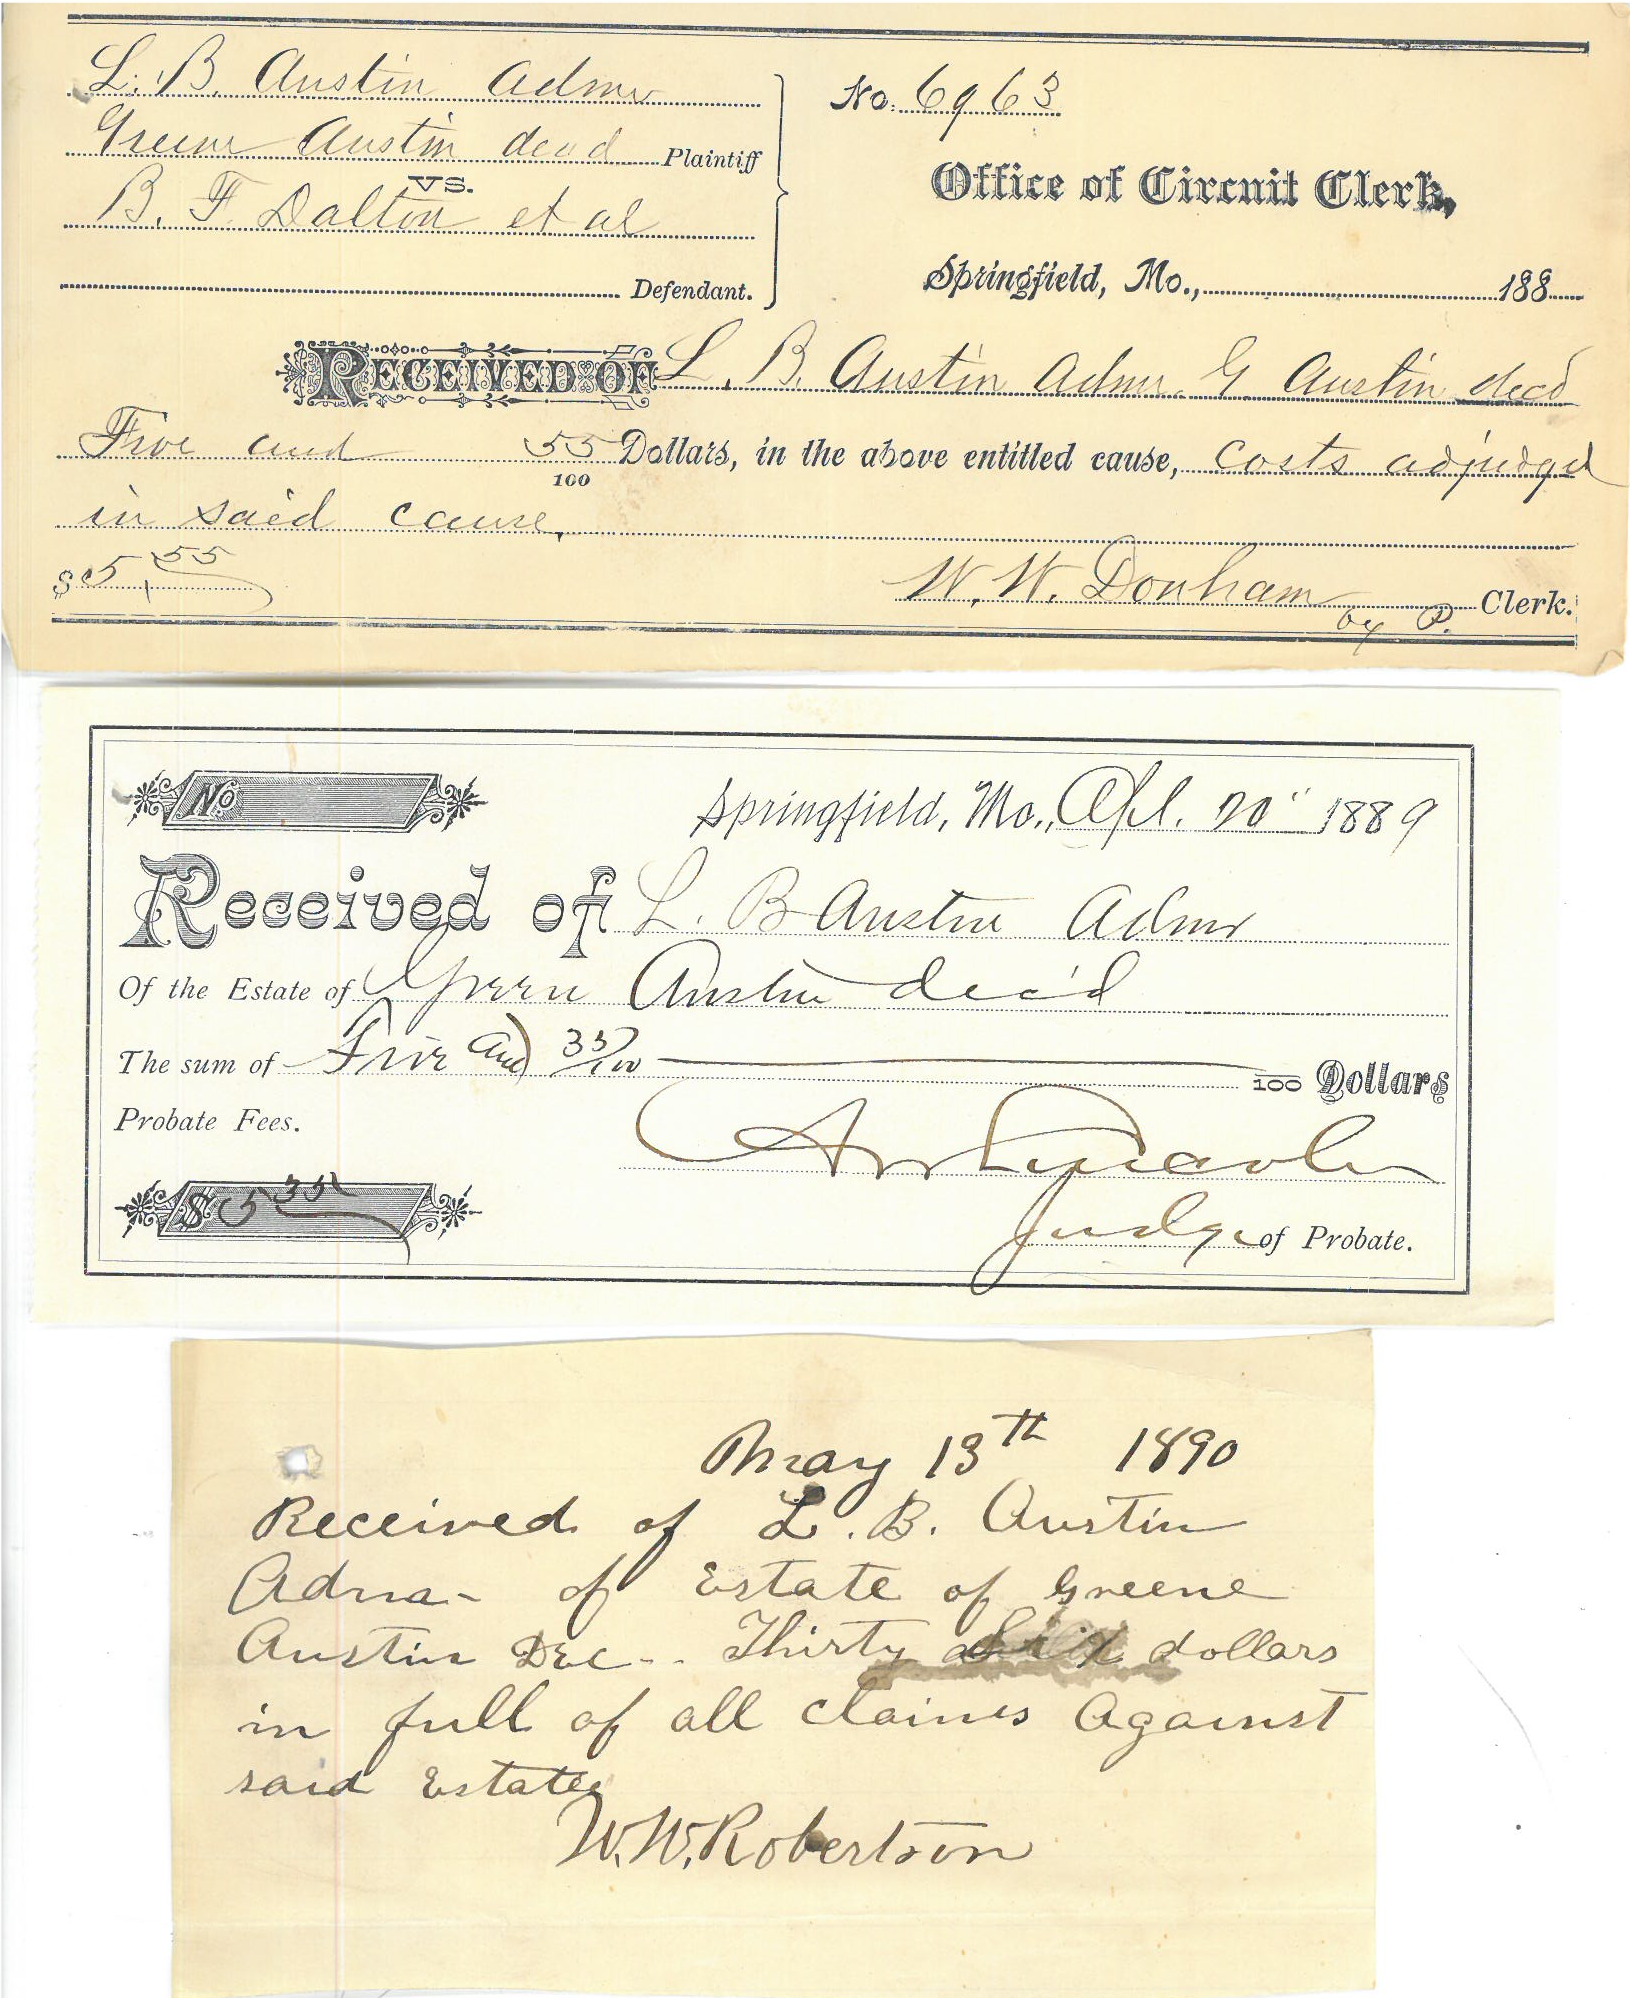 L. B. Austin Admr
Greene Austin decd Plaintiff
vs.
B. F. Dalton et al
Defendant.
No. 6963
Office of Circuit Clerk,
Springfield, Mo., 188
Received of L. B. Austin Admr. G Austin decd
Five and 55/100 Dollars, in the above entitled cause, costs adjudged
in said cause,
$5,55
W. W. Donham Clerk.
by P.
No
Springfield, Mo., Apl. 20" 1889
Received of L. B Austin Admr
Of the Estate of Green Austin dec'd
The sum of Five and 35/100 /100 Dollars
Probate Fees.
$5 35
Judge of Probate.
May 13th 1890
Received of L. B. Austin
Adma- of Estate of Greene
Austin Dec-. Thirty Six dollars
in full of all claims Against
said Estate
W. W. Robertson